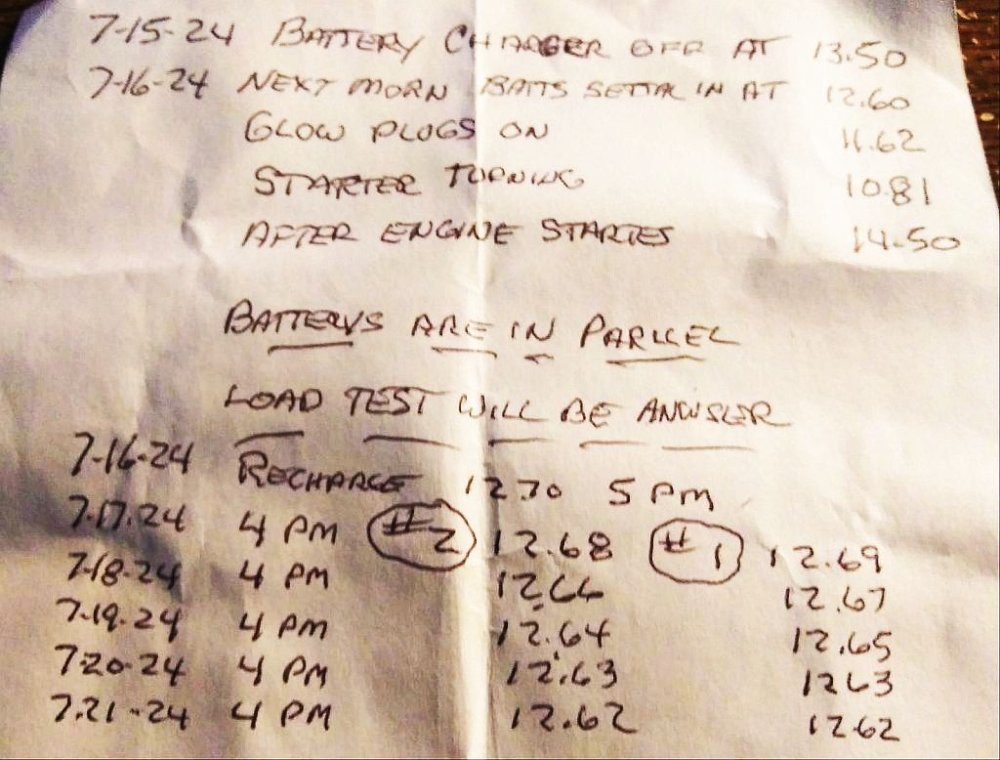 7-15-24 BATTERY CHARGER OFF AT 13.50
7-16-24 NEXT MORN BATTS SETTAL IN AT 12.60
GLOW PLUGS ON 11.62
STARTER TURNING 10.81
AFTER ENGINE STARTES 14.50
BATTERYS ARE IN PARLLEL
LOAD TEST WILL BE ANWSER
7-16-24 RECHARGE 12.70 5 PM
7.17.24 4 PM #2 12.68 #1 12.69
7-18-24 4 PM 12.66 12.67
7-19-24 4 PM 12.64 12.65
7-20-24 4 PM 12.63 12.63
7.21-24 4 PM 12.62 12.62